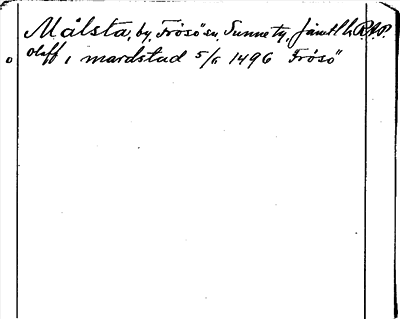 Målsta, by, Frösö sn, Sunne tg, Jämtl. l. R.A.P.
Olaff i mardstad 5/6 1496 Frösö